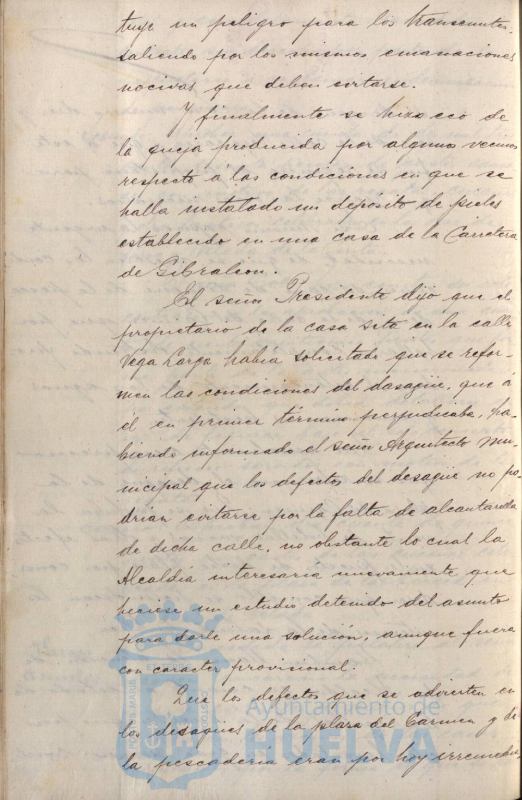 tuye un peligro para los transeuntes,
saliendo por los mismos emanaciones
nocivas que deben evitarse.
Y finalmente se hizo eco de
la queja producida por algunos vecinos
respecto á las condiciones en que se
halla instalado un depósito de pieles
establecido en una casa de la Carretera
de Gibraleon.
El señor Presidente dijo que el
propietario de la casa site en la calle
Vega Larga había solicitado que se refor-
men las condiciones del desagüe, que á
él en primer término perjudicaba, ha-
biendo informado el señor Arquitecto Mu-
nicipal que los defectos del desagüe no po-
drían evitarse por la falta de alcantarilla
de dicha calle, no obstante lo cual la
Alcaldía interesaría nuevamente que
hiciese un estudio detenido del asunto
para darle una solución, aunque fuera
con caracter provisional.
Que los defectos que se advierten en
los desagües de la plaza del Carmen y de
la pescadería eran por hoy
Ayuntamiento de
HUELVA